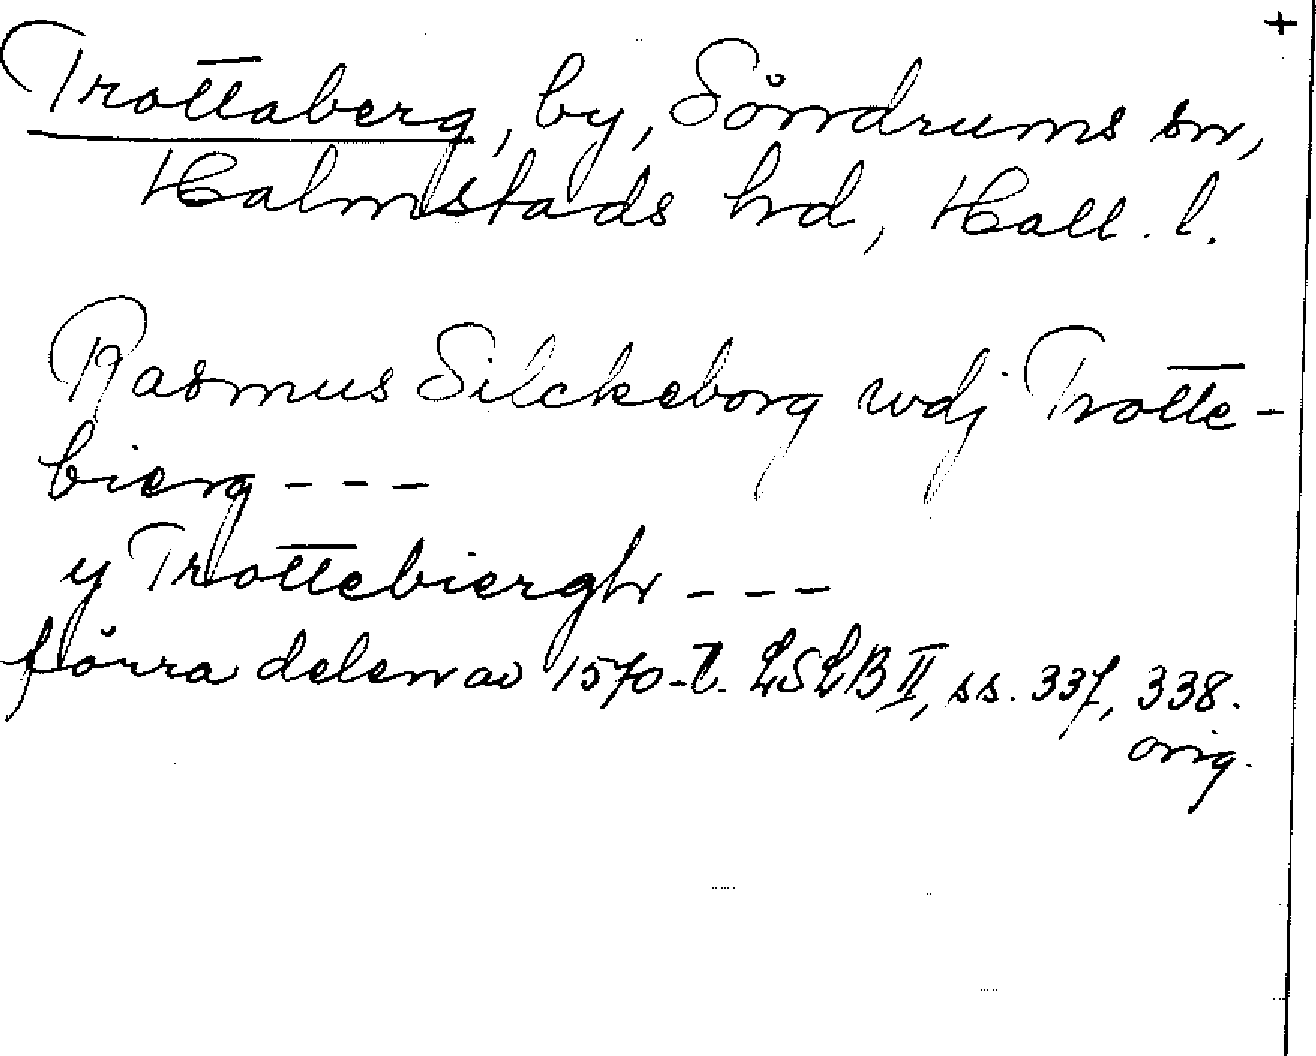 +
Trottaberg, by, Söndrums sn,
Halmstads hd, Hall. l.
Rasmus Silckeborg wdj Trotte-
bierg - - -
y Trottebiergh - - -
förra delen av 1570-t. LSLB II, ss. 337, 338.
orig.